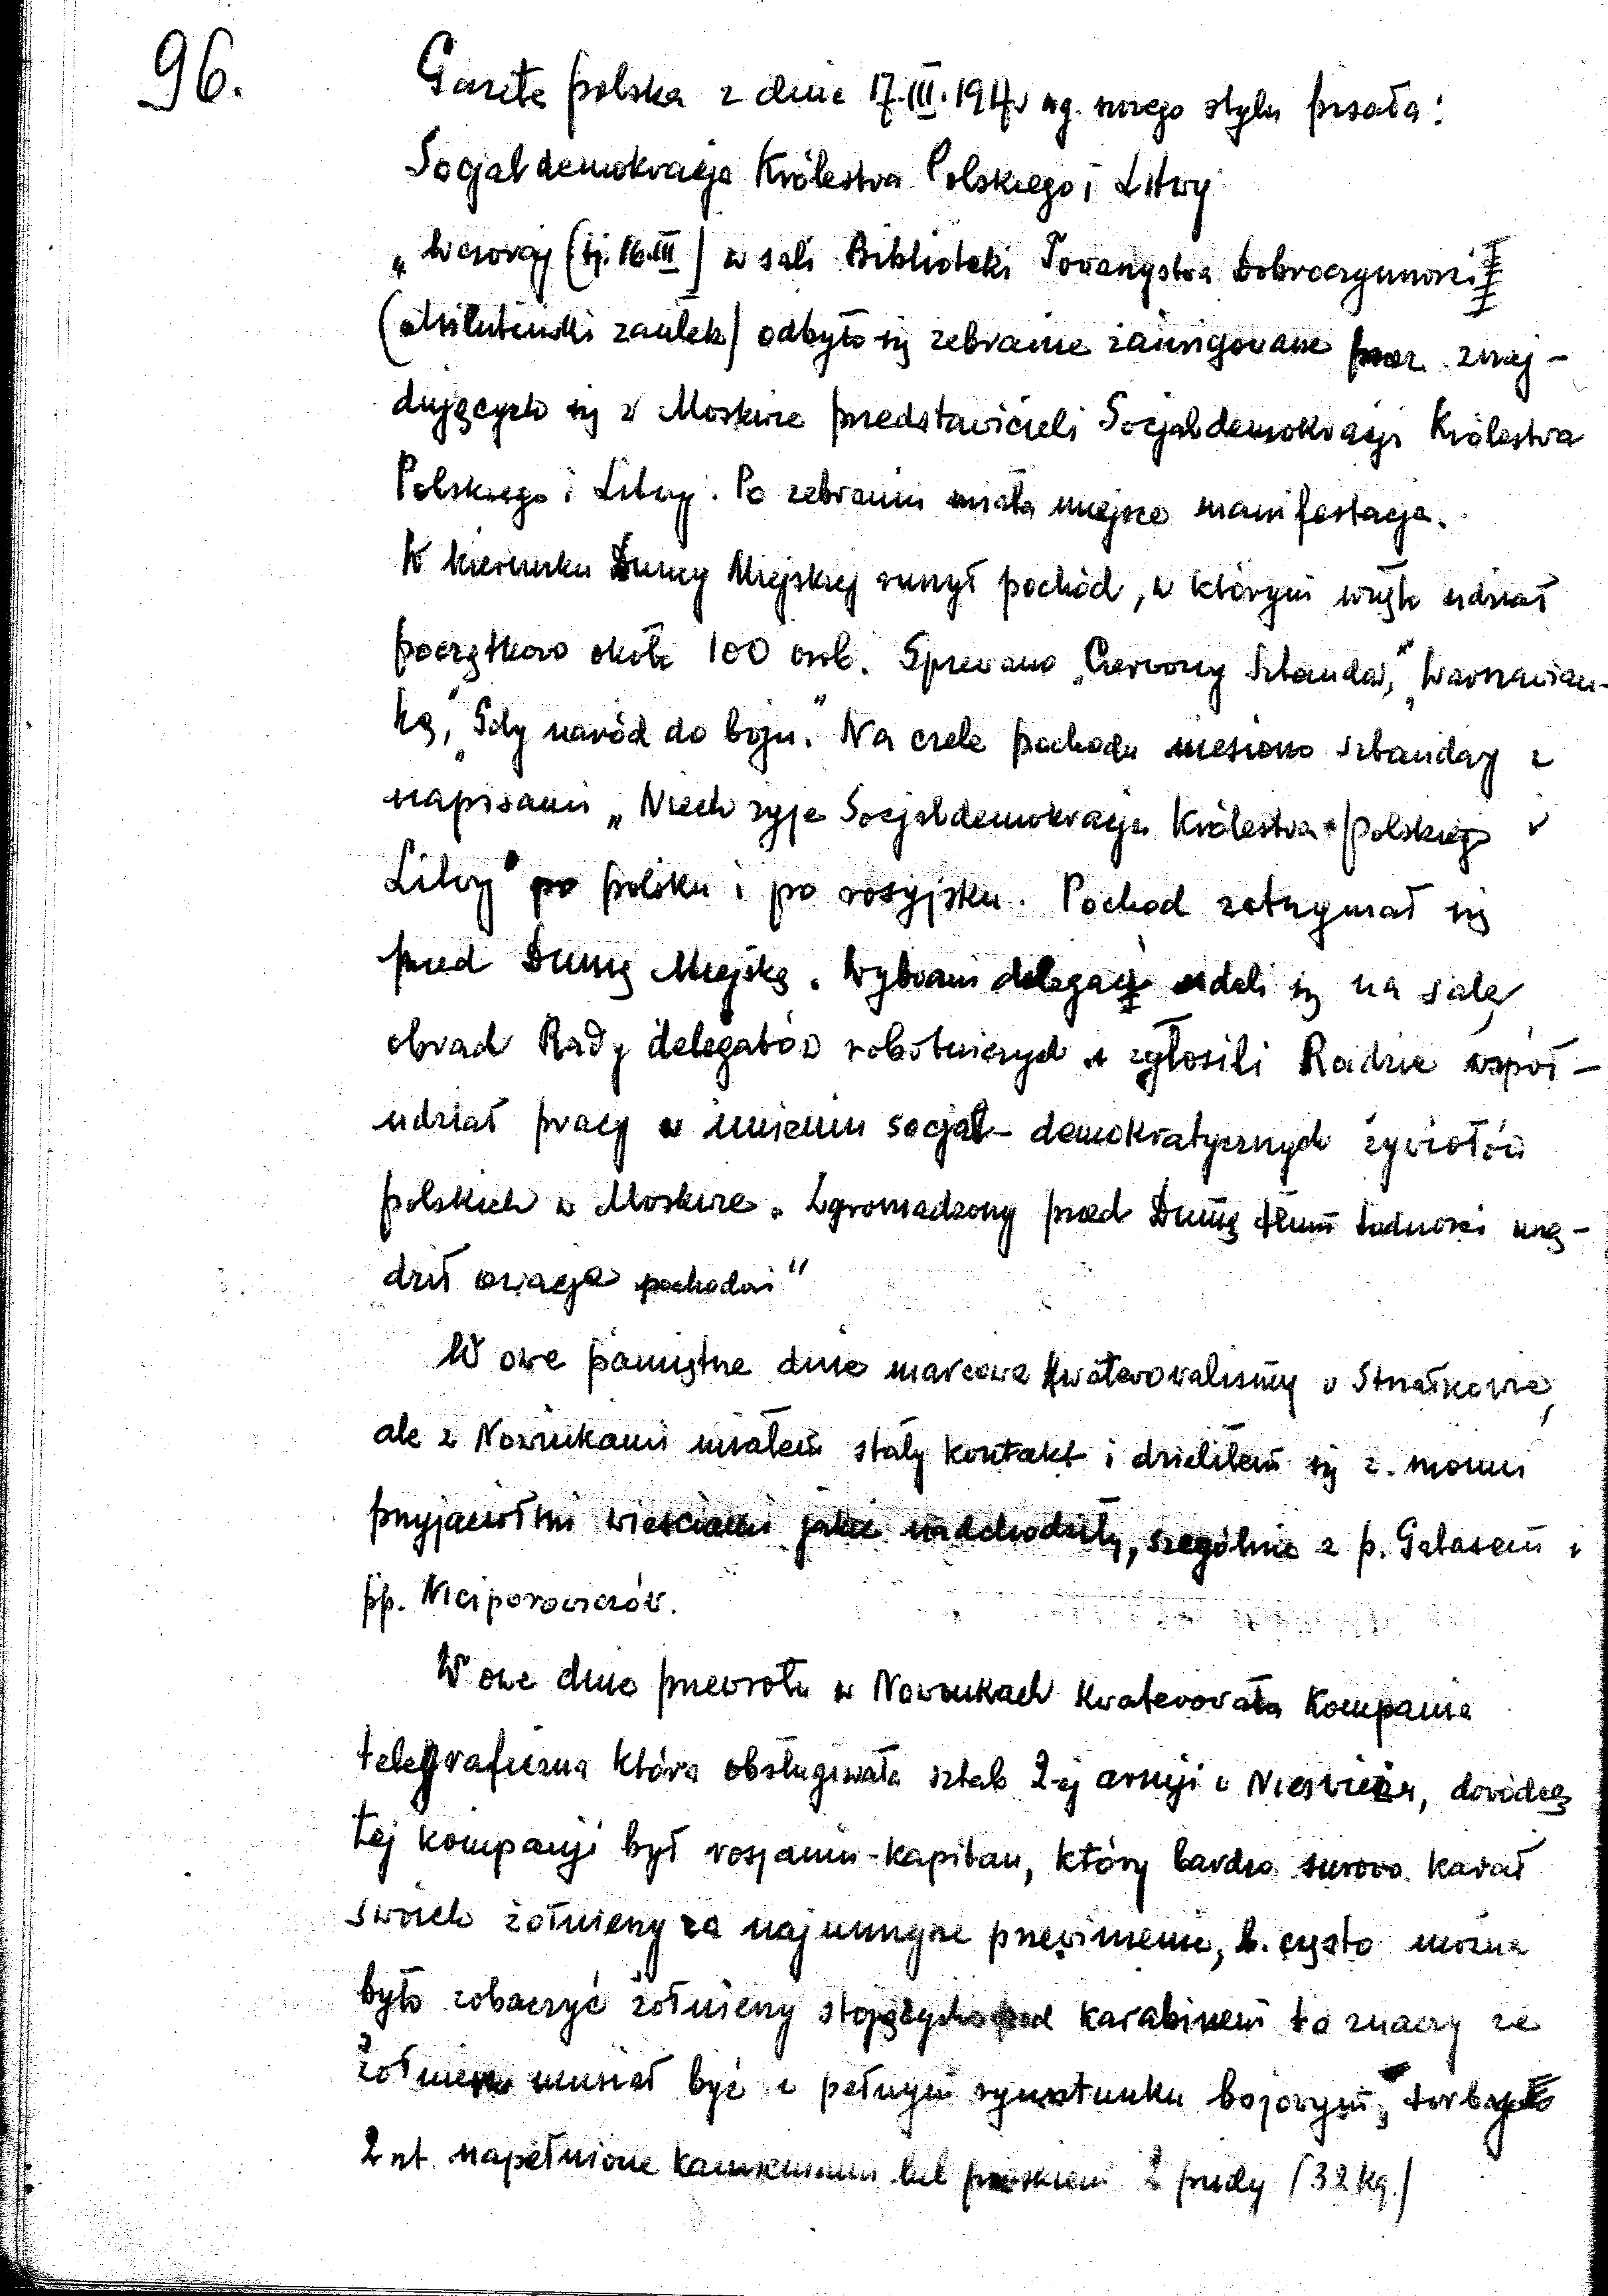 96.
Gazeta polska z dnia 17.III.1917r wg. nowego stylu pisała:
Socjaldemokracja Królestwa Polskiego i Litwy
„Wczoraj (tj. 16.III) w sali Biblioteki Towarzystwa Dobroczynności
(Milutiński zaułek) odbyło się zebranie zainigowane przez znaj-
dujących się w Moskwie przedstawicieli Socjaldemokracji Królestwa
Polskiego i Litwy. Po zebraniu miała miejsce manifestacja.
W kierunku Dumy Miejskiej ruszył pochód, w którym wzięło udział
początkowo około 100 osób. Śpiewano „Czerwony Sztandar," „Warszawian-
kę," „Gdy naród do boju." Na czele pochodu niesiono sztandary z
napisami „Niech żyje Socjaldemokracja Królestwa Polskiego i
Litwy" po polsku i po rosyjsku. Pochód zatrzymał się
przed Dumą Miejską. Wybrani delegaci udali się na salę
obrad Rady delegatów robotniczych i zgłosili Radzie współ-
udział pracy w imieniu socjal-demokratycznych żywiołów
polskich w Moskwie. Zgromadzony przed Dumą tłum ludności urzą-
dził owacje pochodowi"
W owe pamiętne dnie marcowe kwaterowaliśmy w Strzałkowie,
ale z Nowinkami miałem stały kontakt i dzieliłem się z moimi
przyjaciółmi wieściami jakie nadchodziły, szególnie z p. Gałasem i
pp. Niciporowiczów.
W owe dnie przewrotu w Nowinkach kwaterowała kompania
telegraficzna która obsługiwała sztab 2-ej armji w Nieświeżu, dowódcą
tej kompanji był rosjanin-kapitan, który bardzo surowo karał
swoich żołnierzy za najmniejsze przewinienie, b. często można
było zobaczyć żołnierzy stojących pod karabinem to znaczy że
żołnierz musiał być w pełnym rynsztunku bojowym, torby
2 szt. napełnione kamieniami lub piaskiem 2 pudy (32 kg.)